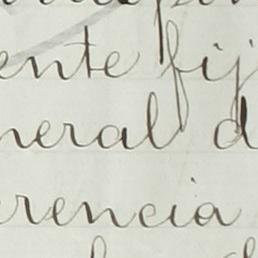 ente fij
neral d
rencia